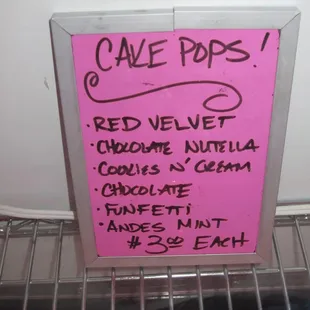 CAKE POPS!
• RED VELVET
• CHOCOLATE NUTELLA
• COOKIES N' CREAM
• CHOCOLATE
• FUNFETTI
• ANDES MINT
$3.00 EACH